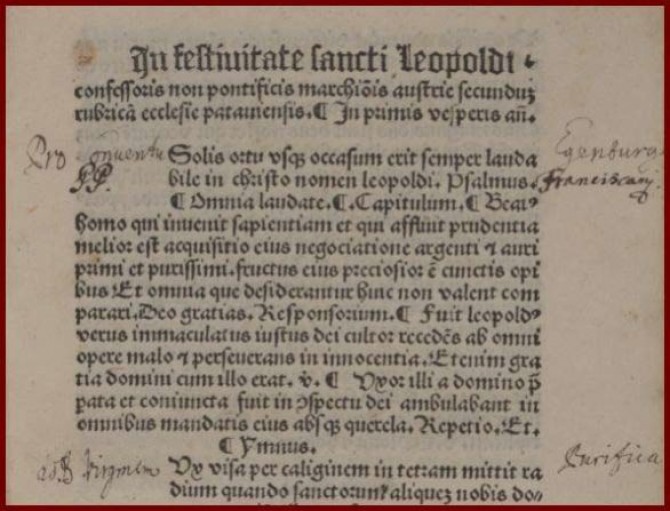 In festiuitate sancti Leopoldi
confessoris non pontificis marchiōis austrie secunduꝫ
rubricā ecclesie patauiensis. ¶ In primis vesperis añ.
Pro conuentu Solis ortu vsqꝫ occasum erit semper lauda Egenburg
PP. bile in christo nomen leopoldi. Psalmus. Franciscanj.
¶ Omnia laudate. ¶. Capitulum. ¶ Beatꝰ
homo qui inuenit sapientiam et qui affluit prudentia
melior est acquisitio eius negociatione argenti ⁊ auri
primi et purissimi. fructus eius preciosior ē cunctis opi
bus Et omnia que desiderantur huic non valent com
parari. Deo gratias. Responsorium. ¶ Fuit leopoldꝰ
verus immaculatus iustus dei cultor recedēs ab omni
opere malo ⁊ perseuerans in innocentia. Etenim gra
tia domini cum illo erat. v̄. ¶ Vxor illi a domino p̄
pata et coniuncta fuit in ꝯspectu dei ambulabant in
omnibus mandatis eius absqꝫ querela. Repetio. Et.
¶ Ymnus.
Virginem Ux visa per caliginem in tetram mittit ra Purifica
dium quando sanctorum aliqueꝫ nobis do⸗